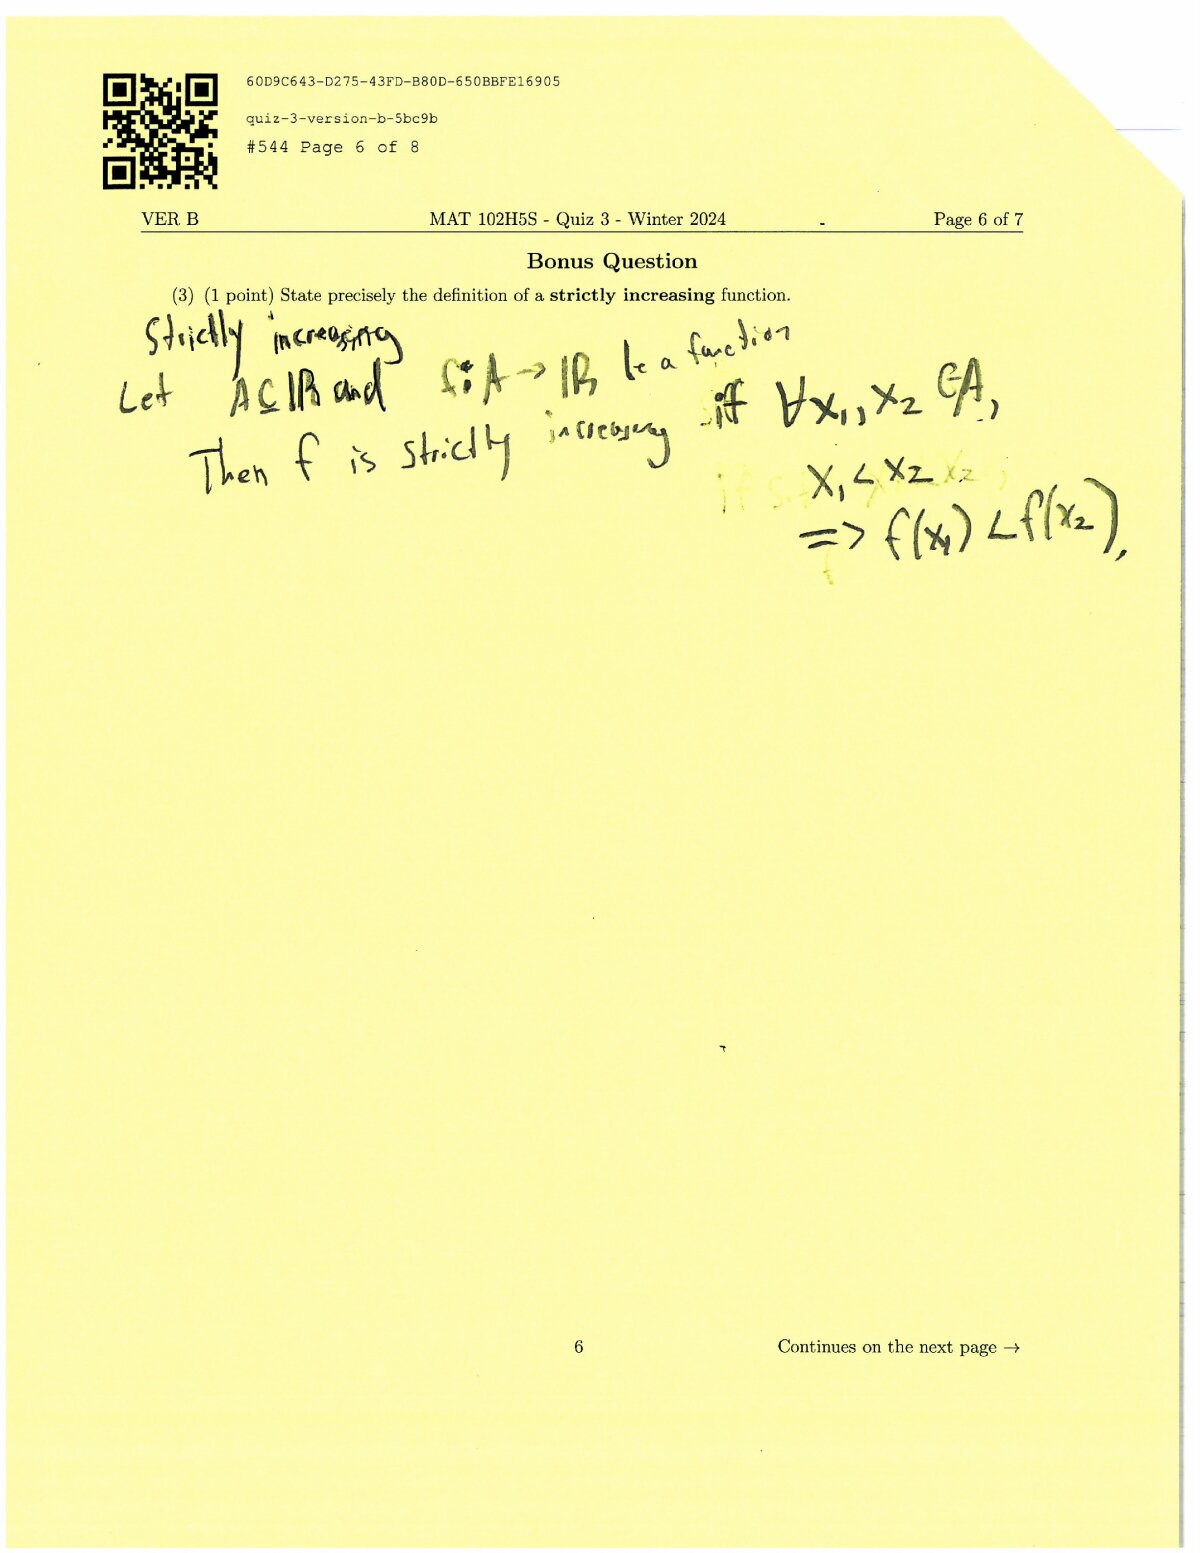 60D9C643-D275-43FD-B80D-650BBFE16905
quiz-3-version-b-5bc9b
#544 Page 6 of 8
VER B MAT 102H5S - Quiz 3 - Winter 2024 Page 6 of 7
Bonus Question
(3) (1 point) State precisely the definition of a strictly increasing function.
Strictly increasing
Let A ⊆ ℝ and f: A → ℝ be a function
Then f is strictly increasing iff ∀x₁, x₂ ∈ A,
x₁ < x₂
=> f(x₁) < f(x₂).
6 Continues on the next page →